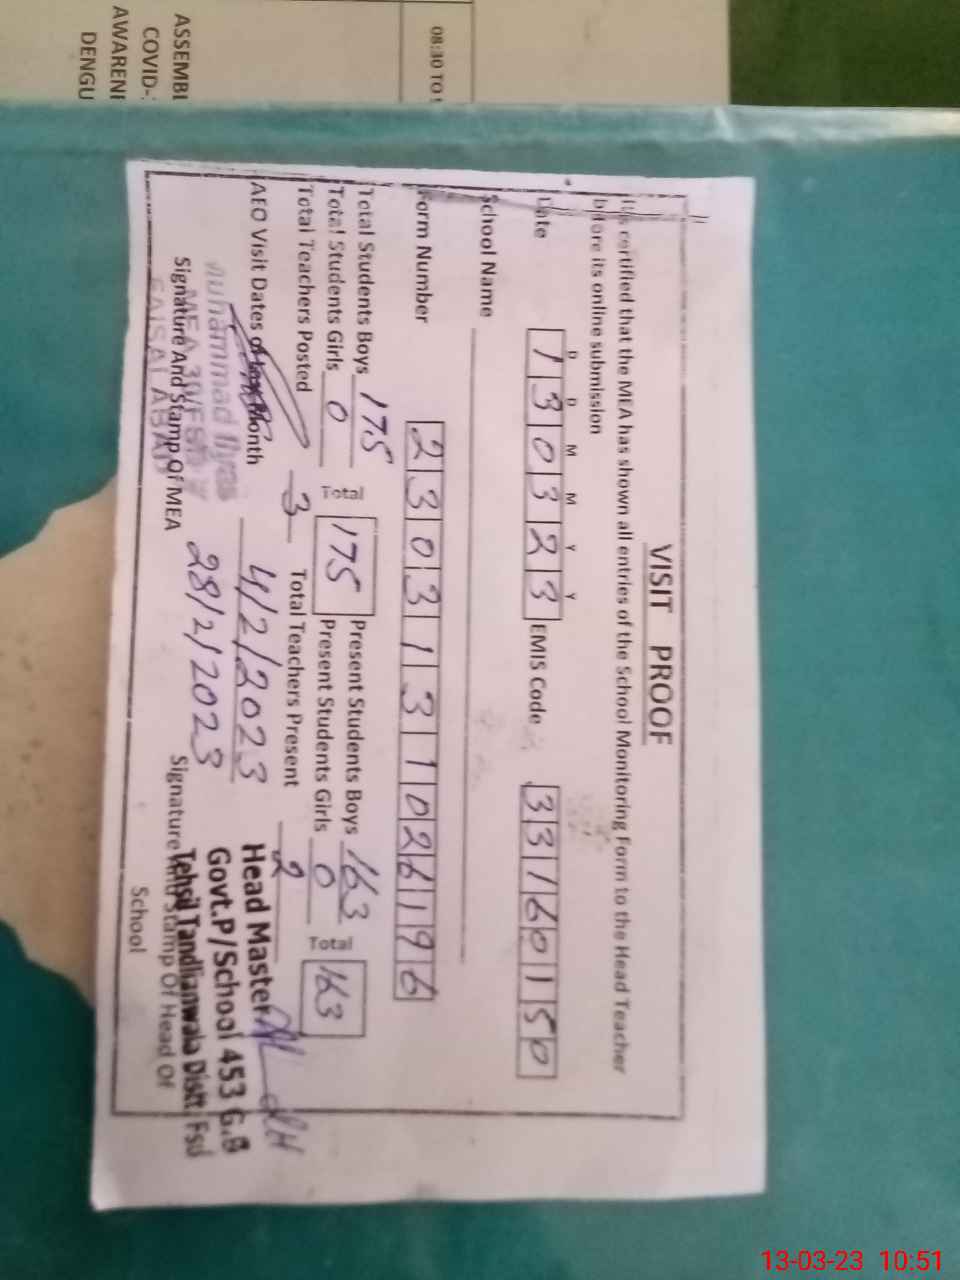 08:30 TO
ASSEMBL
COVID-
AWARENE
DENGU
VISIT PROOF
It is certified that the MEA has shown all entries of the School Monitoring Form to the Head Teacher
before its online submission
D D M M Y Y
Date 130323 EMIS Code 33160150
School Name
Form Number 2303131026196
Total Students Boys 175 Present Students Boys 163
Total Students Girls 0 Total 175 Present Students Girls 0 Total 163
Total Teachers Posted 3 Total Teachers Present 2
AEO Visit Dates of Month 4/2/2023
28/2/2023
Muhammad Ilyas
MEA
FAISALABAD
Signature And Stamp Of MEA
Head Master
Govt.P/School 453 G.B
Tehsil Tandlianwala Distt. Fsd
Signature And Stamp Of Head Of
School
13-03-23 10:51